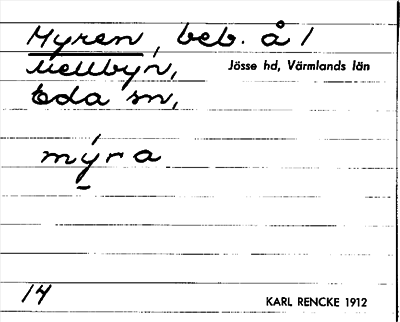 Myren, beb. å 1
Mellbyn, Jösse hd, Värmlands län
Eda sn,
mýra
14 KARL RENCKE 1912